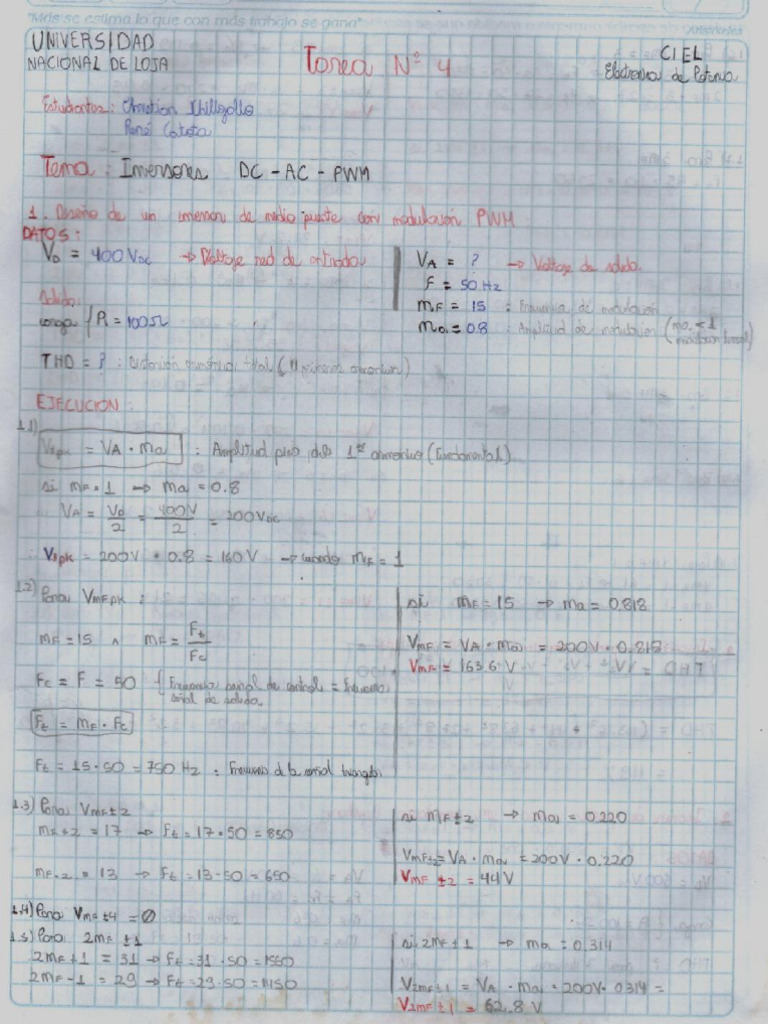 "Más se estima lo que con más trabajo se gana"
UNIVERSIDAD
NACIONAL DE LOJA
Tarea N° 4
CIEL
Electronica de Potencia
Estudiantes: Christian
René
Tema: Inversores DC - AC - PWM
1. Diseño de un inversor de medio puente con modulación PWM
DATOS:
V₀ = 400 VDC → Voltaje red de entrada
Salida:
carga { R = 100Ω
THD = ? : Distorsión armónica total (11 primeros armonicos)
VA = ? → Voltaje de salida
F = 50 Hz
mF = 15 : Frecuencia de modulación
ma = 0.8 : Amplitud de modulación (ma < 1
EJECUCION:
1.1)
V1pk = VA · ma : Amplitud pico del 1er armonico (Fundamental)
si mF = 1 → ma = 0.8
VA = V₀/2 = 400V/2 = 200 VDC
∴ V1pk = 200V * 0.8 = 160 V → cuando mF = 1
1.2) Para VmFpk :
mF = 15 ∧ mF = Ft/Fc
Fc = F = 50 { Frecuencia señal de control = Frecuencia
señal de salida.
Ft = mF · Fc
Ft = 15 · 50 = 750 Hz : Frecuencia de la señal triangular
si mF = 15 → ma = 0.818
VmF = VA · ma = 200V · 0.818
VmF = 163.6 V
1.3) Para VmF±2
mF+2 = 17 → Ft = 17 · 50 = 850
mF-2 = 13 → Ft = 13 · 50 = 650
si mF±2 → ma = 0.220
VmF±2 = VA · ma = 200V · 0.220
VmF±2 = 44V
1.4) Para VmF±4 = Ø
1.5) Para 2mF±1
2mF+1 = 31 → Ft = 31 · 50 = 1550
2mF-1 = 29 → Ft = 29 · 50 = 1450
si 2mF±1 → ma = 0.314
V2mF±1 = VA · ma = 200V · 0.314 =
V2mF±1 = 62.8 V